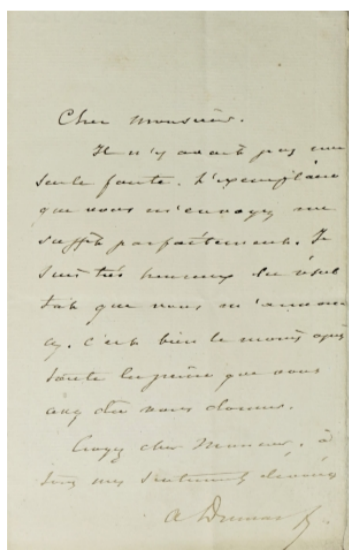 Cher Monsieur.
Il n'y avait pas une
seule faute. L'exemplaire
que vous m'envoyez me
suffit parfaitement. Je
suis très heureux du résul
tat que vous m'annon
cez. C'est bien le moins après
toute la peine que vous
avez dû vous donner.
Croyez cher Monsieur, à
tous mes sentiments dévoués
A Dumas f